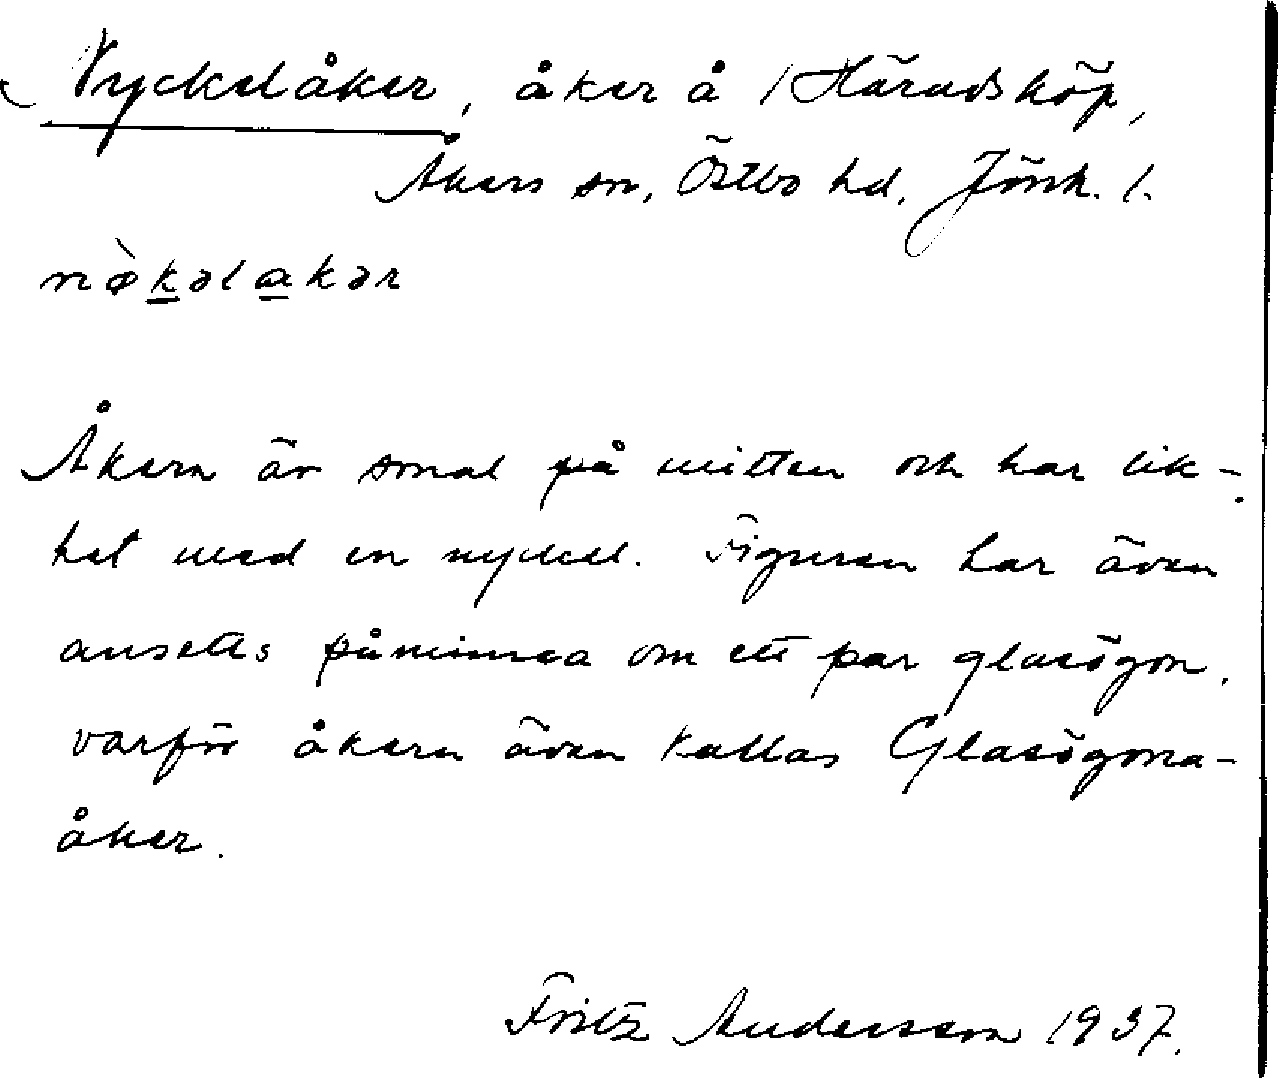 Nyckelåker, åker å /Häradsköp,
Åkers sn, Östbo hd, Jönk. l.
nø̀kəlakər
Åkern är smal på mitten och har lik-
het med en nyckel. Figuren har även
ansetts påminna om ett par glasögon,
varför åkern även kallas Glasögona-
åker.
Fritz Andersson 1937.